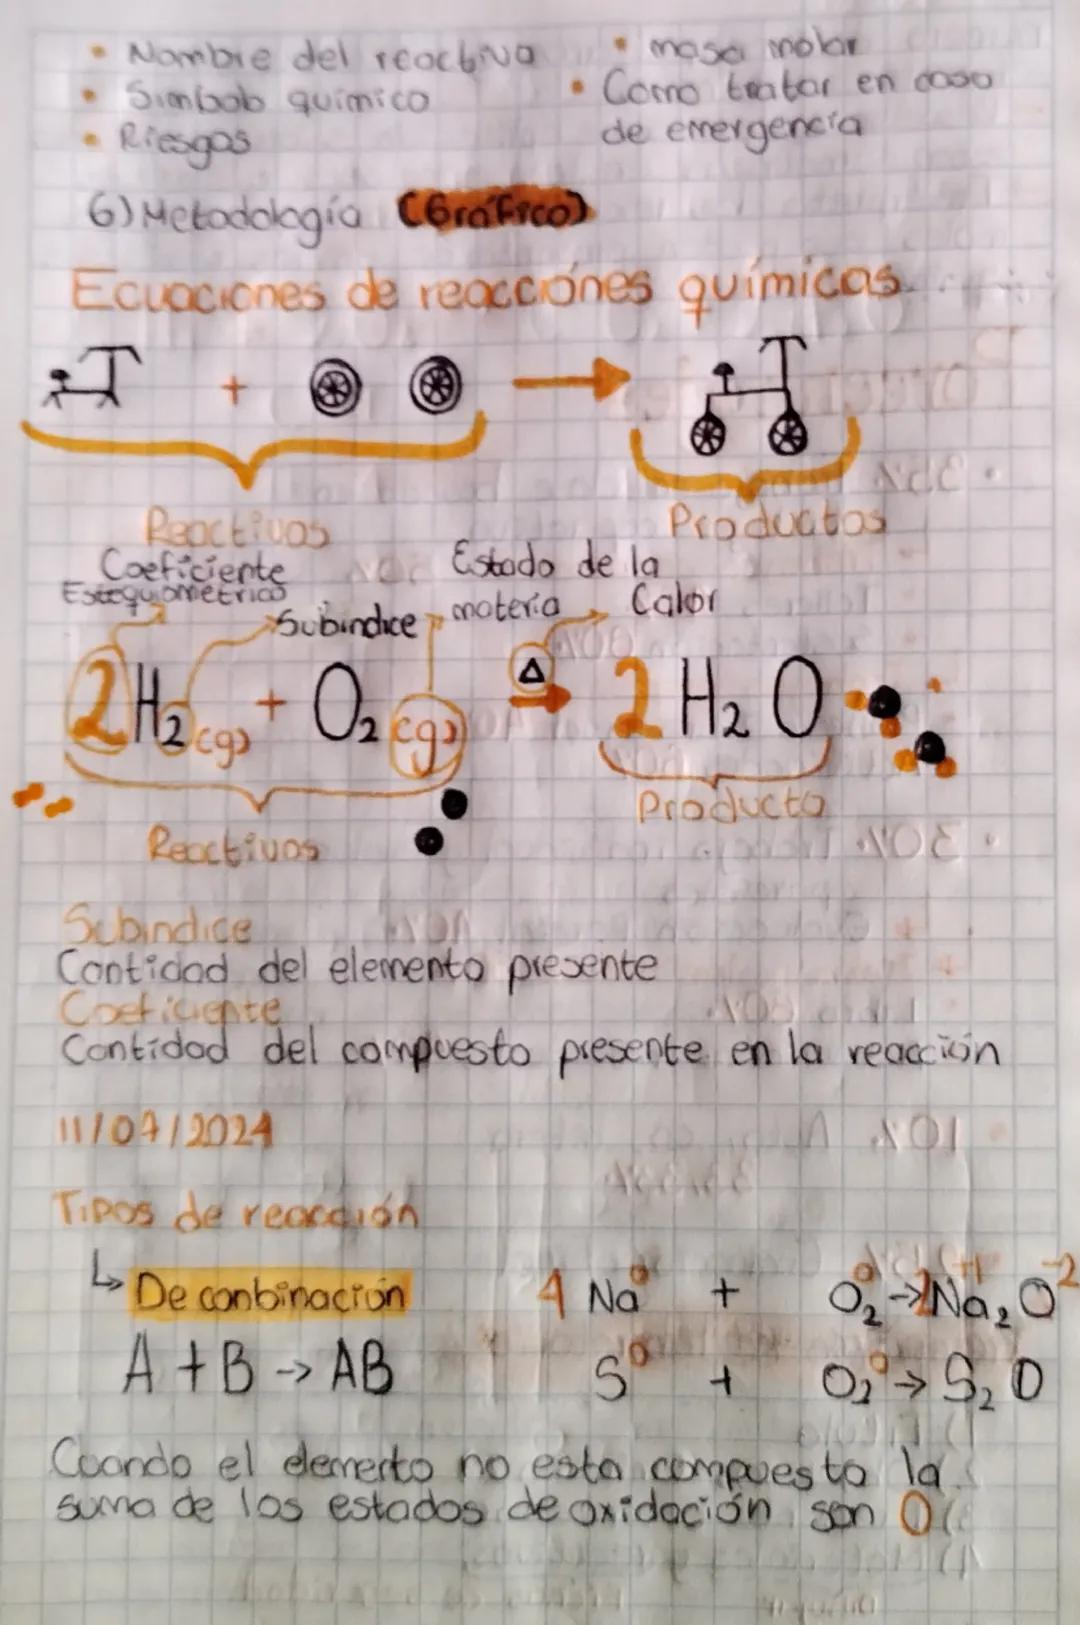 • Nombre del reactivo
• Simbolo químico
• Riesgos
• masa molar
• Como tratar en caso
de emergencia
6) Metodología (Gráfico)
Ecuaciones de reacciónes químicas
+ →
Reactivos
Productos
Coeficiente
Estequiometrico
Subindice
Estado de la
materia
Calor
2H₂(g) + O₂(g) Δ→ 2H₂O
Reactivos
Producto
Subindice
Cantidad del elemento presente
Coeficiente
Cantidad del compuesto presente en la reacción
11/07/2024
Tipos de reacción
↳ De conbinación
A + B → AB
4 Na⁰ + O₂⁰ → 2Na₂⁺¹O⁻²
S⁰ + O₂⁰ → S₂O
Cuando el elemento no esta compuesto la
suma de los estados de oxidación son 0